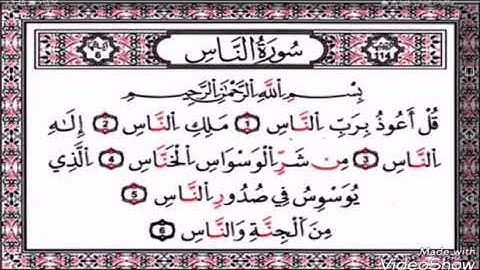 سُورَةُ النَّاسِ
بِسْمِ اللَّهِ الرَّحْمَٰنِ الرَّحِيمِ
قُلْ أَعُوذُ بِرَبِّ النَّاسِ ١ مَلِكِ النَّاسِ ٢ إِلَٰهِ
النَّاسِ ٣ مِن شَرِّ الْوَسْوَاسِ الْخَنَّاسِ ٤ الَّذِي
يُوَسْوِسُ فِي صُدُورِ النَّاسِ ٥
مِنَ الْجِنَّةِ وَالنَّاسِ ٦
Made with
VideoShow